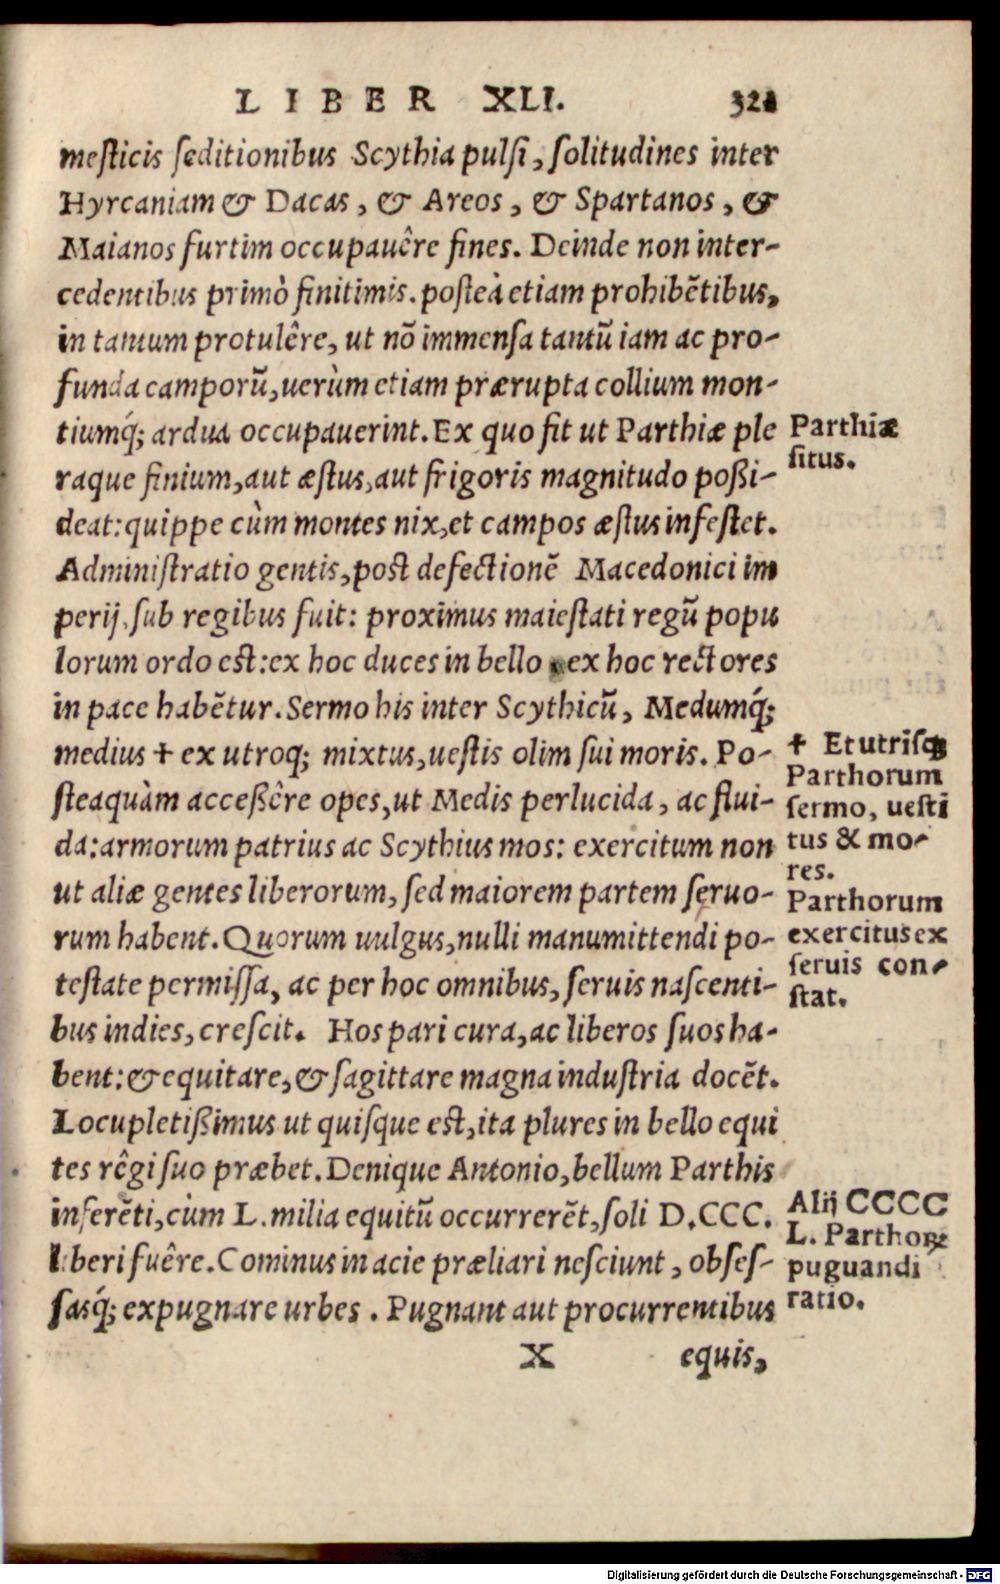 LIBER XLI. 321
mesticis seditionibus Scythia pulsi, solitudines inter
Hyrcaniam & Dacas, & Areos, & Spartanos, &
Maianos furtim occupauêre fines. Deinde non inter-
cedentibus primò finitimis. posteà etiam prohibẽtibus,
in tantum protulêre, ut nõ immensa tantũ iam ac pro-
funda camporũ, uerùm etiam prærupta collium mon-
tiumq́; ardua occupauerint. Ex quo fit ut Parthiæ ple
raque finium, aut æstus, aut frigoris magnitudo poßi-
deat: quippe cùm montes nix, et campos æstus infestet.
Administratio gentis, post defectionẽ Macedonici im
perij, sub regibus fuit: proximus maiestati regũ popu
lorum ordo est: ex hoc duces in bello, ex hoc rectores
in pace habẽtur. Sermo his inter Scythicũ, Medumq́;
medius + ex utroq; mixtus, uestis olim sui moris. Po-
steaquàm acceßêre opes, ut Medis perlucida, ac flui-
da: armorum patrius ac Scythius mos: exercitum non
ut aliæ gentes liberorum, sed maiorem partem seruo-
rum habent. Quorum uulgus, nulli manumittendi po-
testate permissa, ac per hoc omnibus, seruis nascenti-
bus indies, crescit. Hos pari cura, ac liberos suos ha-
bent: & equitare, & sagittare magna industria docẽt.
Locupletißimus ut quisque est, ita plures in bello equi
tes rêgi suo præbet. Denique Antonio, bellum Parthis
inferẽti, cùm L. milia equitũ occurrerẽt, soli D.CCC.
liberi fuêre. Cominus in acie præliari nesciunt, obses-
sasq́; expugnare urbes. Pugnant aut procurrentibus
X equis,
Parthiæ
situs.
+ Et utrisq;
Parthorum
sermo, uesti
tus & mo-
res.
Parthorum
exercitus ex
seruis con-
stat.
Alij CCCC
L. Parthorꝝ
puguandi
ratio.
Digitalisierung gefördert durch die Deutsche Forschungsgemeinschaft - DFG